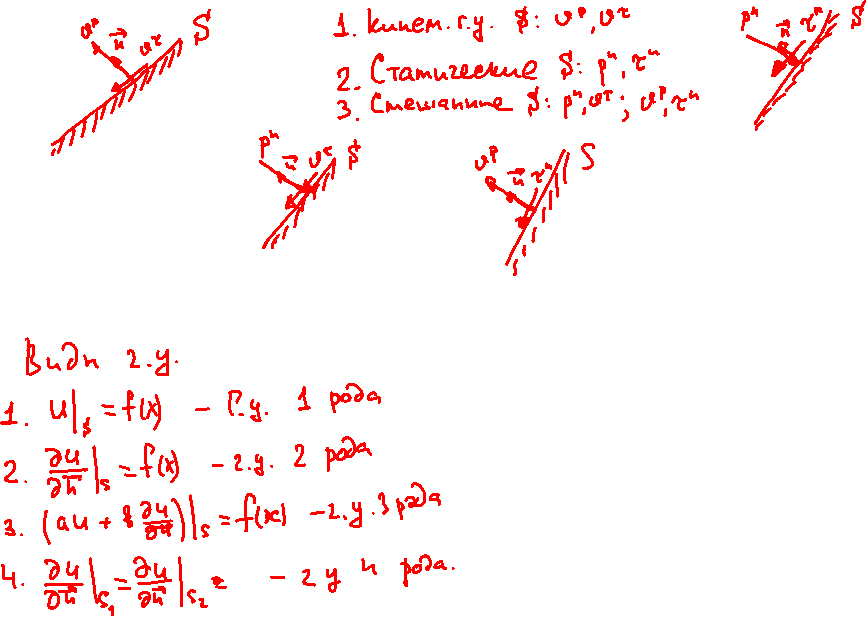 υᵖ n⃗ υᵗ S
1. Кинем. г.у. S: υᵖ, υᵗ
2. Статические S: pⁿ, τⁿ
3. Смешанные S: pⁿ, υᵗ; υᵖ, τⁿ
pⁿ n⃗ τⁿ S
pⁿ n⃗ υᵗ S
υᵖ n⃗ τⁿ S
Виды г.у.
1. u|_S = f(x) – Г.у. 1 рода
2. ∂u/∂n⃗ |_S = f(x) – г.у. 2 рода
3. (au + b ∂u/∂n⃗)|_S = f(x) – г.у. 3 рода
4. ∂u/∂n⃗ |_S₁ = ∂u/∂n⃗ |_S₂ – г у 4 рода.